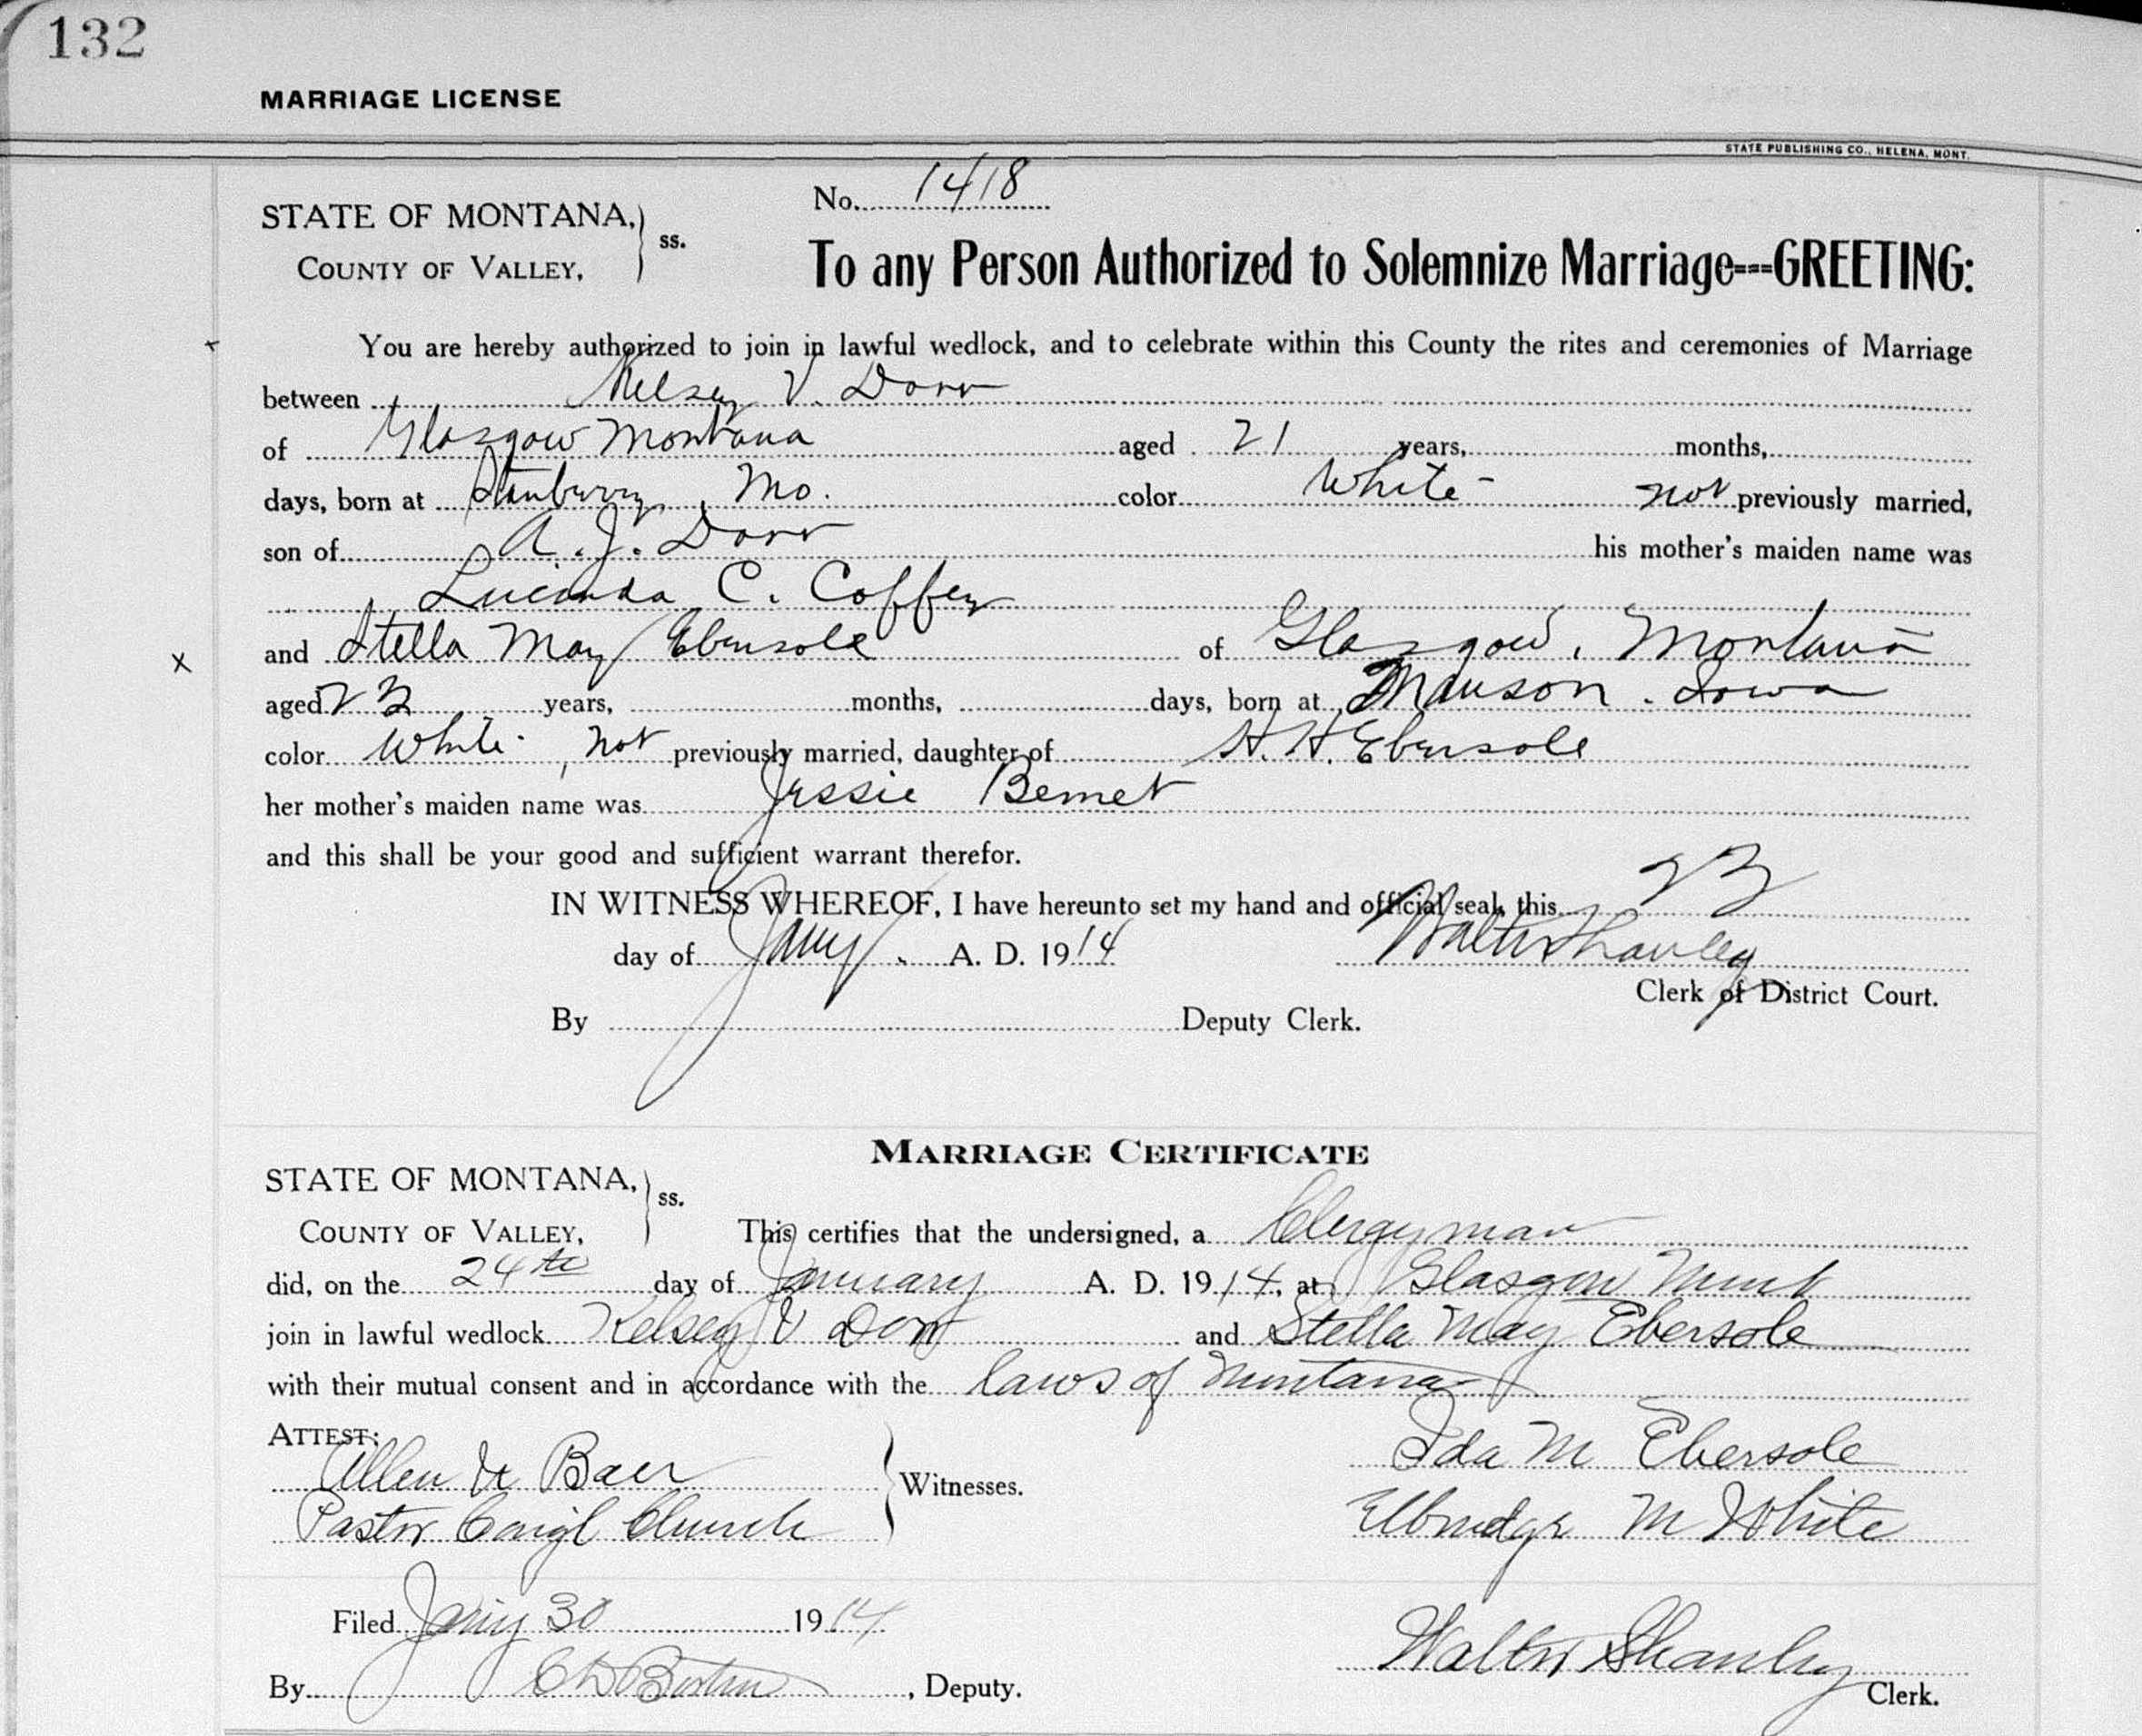 132
MARRIAGE LICENSE
STATE PUBLISHING CO., HELENA, MONT.
No. 1418
STATE OF MONTANA, } ss.
COUNTY OF VALLEY,
To any Person Authorized to Solemnize Marriage---GREETING:
You are hereby authorized to join in lawful wedlock, and to celebrate within this County the rites and ceremonies of Marriage
between Kelsey V. Dorr
of Glasgow Montana aged 21 years, months,
days, born at Stanberry, Mo. color White - not previously married,
son of A. J. Dorr his mother's maiden name was
Lucinda C. Coffey
and Stella May Ebersole of Glasgow, Montana
aged 23 years, months, days, born at Manson. Iowa
color White, not previously married, daughter of H. H. Ebersole
her mother's maiden name was Jessie Bemet
and this shall be your good and sufficient warrant therefor.
IN WITNESS WHEREOF, I have hereunto set my hand and official seal, this 23
day of Jany. A. D. 1914 Walter Shanley
Clerk of District Court.
By Deputy Clerk.
MARRIAGE CERTIFICATE
STATE OF MONTANA, } ss.
COUNTY OF VALLEY, This certifies that the undersigned, a Clergyman
did, on the 24th day of January A. D. 1914, at Glasgow Mont
join in lawful wedlock Kelsey V Dorr and Stella May Ebersole
with their mutual consent and in accordance with the laws of Montana
ATTEST:
Allen H Baer } Witnesses. Ida M Ebersole
Pastor Congl Church Elbridge M White
Filed Jany 30 1914 Walter Shanley
By , Deputy. Clerk.